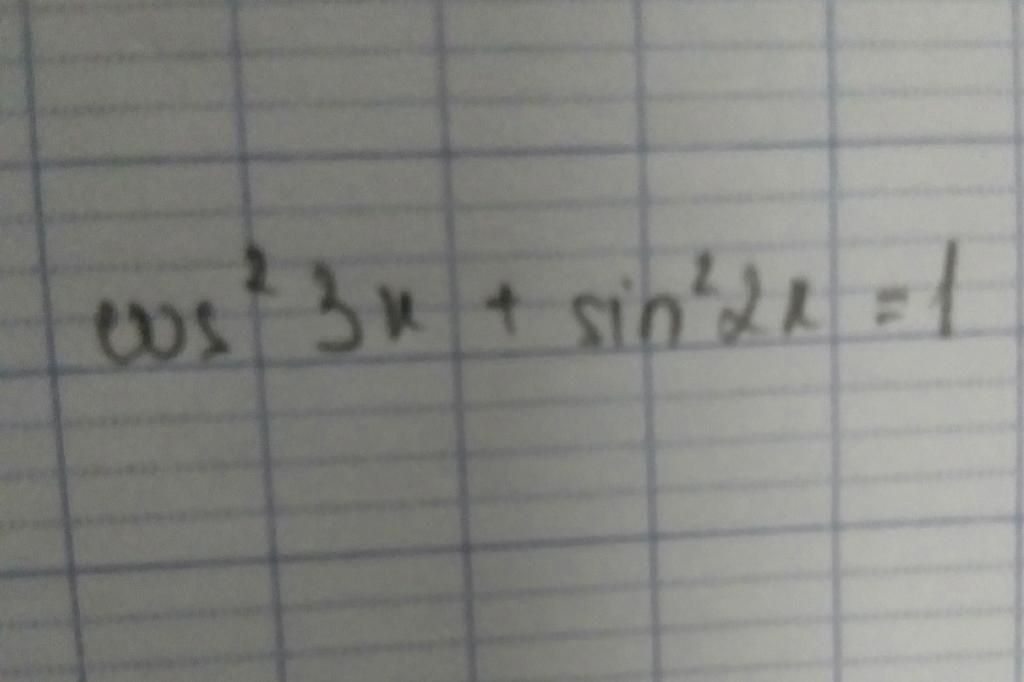 cos² 3x + sin² 2x = 1